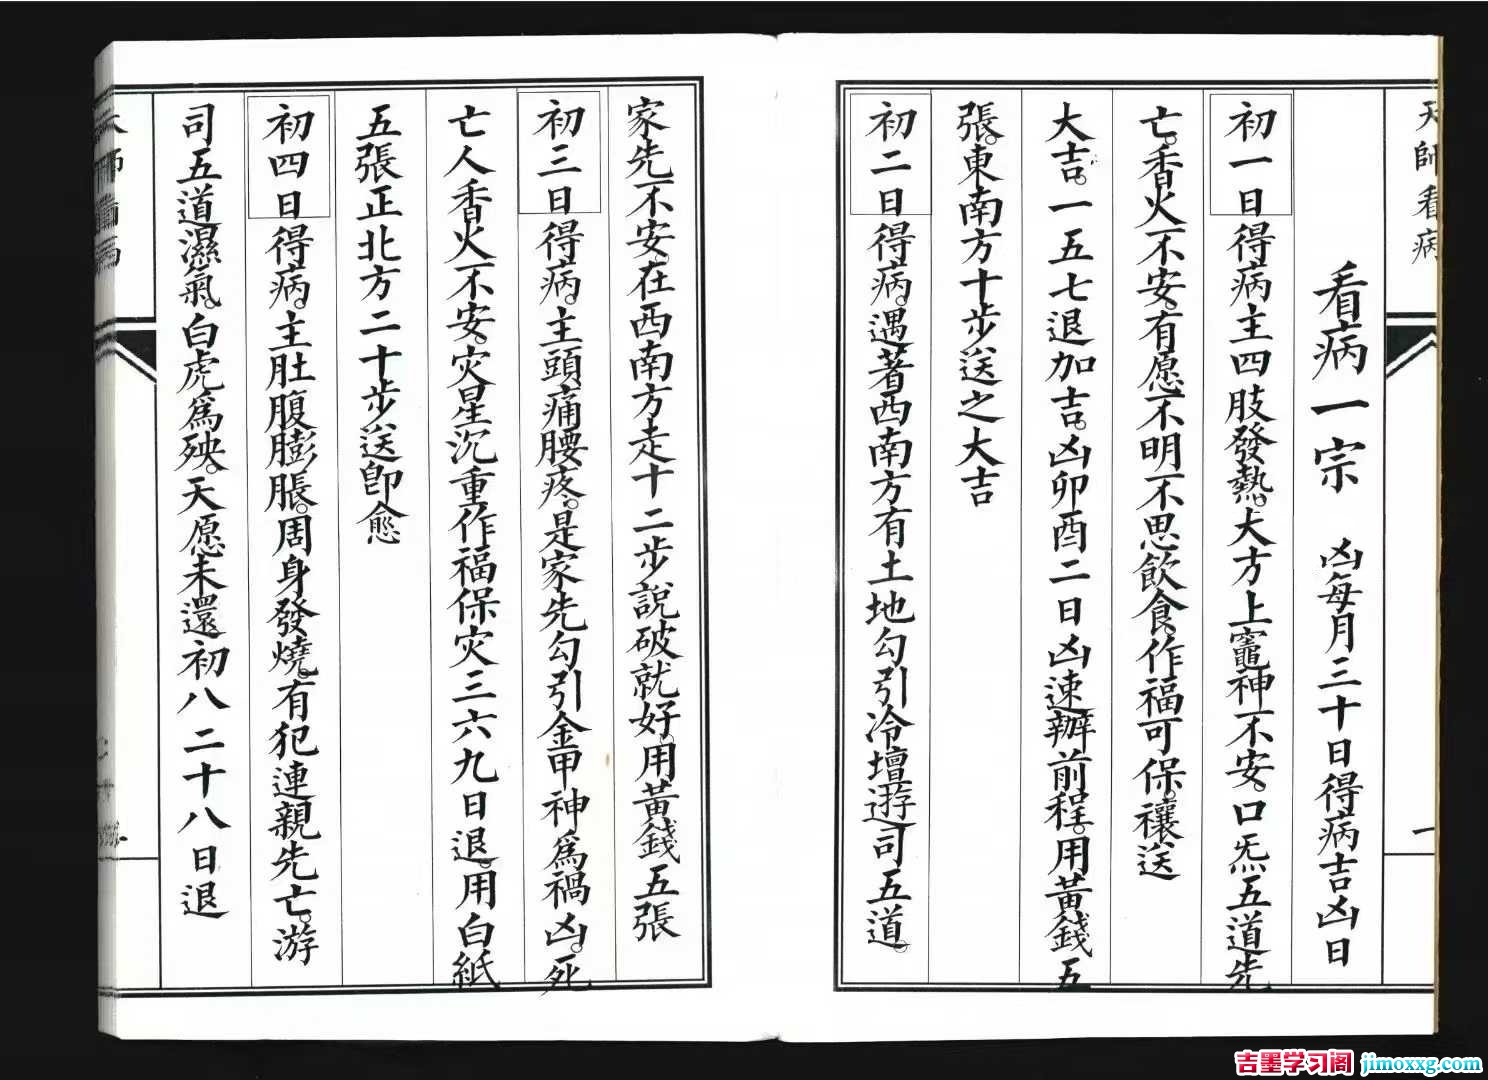 天師看病
一
看病一宗 凶每月三十日得病吉凶日
初一日得病主四肢發熱。大方上竈神不安。口炁五道先
亡。香火不安。有愿不明不思飲食。作福可保。禳送
大吉。一五七退加吉。凶卯酉二日凶速辦前程。用黃錢五
張。東南方十步送之大吉
初二日得病。遇著西南方有土地勾引冷壇遊司五道。
家先不安。在西南方走十二步說破就好。用黃錢五張
初三日得病。主頭痛腰疼。是家先勾引金甲神爲禍凶。死
亡人香火不安。灾星沉重作福保灾三六九日退。用白紙
五張正北方二十步送卽愈
初四日得病。主肚腹膨脹。周身發燒。有犯連親先亡。游
司五道濕氣。白虎爲殃。天愿未還初八二十八日退
吉墨学习阁 jimoxxg.com